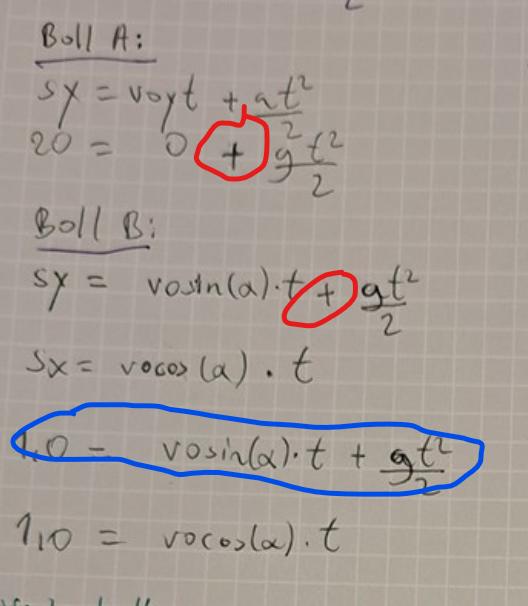 Boll A:
sy = voyt + at²/2
20 = 0 + gt²/2
Boll B:
sy = vosin(α)·t + gt²/2
sx = vocos(α)·t
1,0 = vosin(α)·t + gt²/2
1,0 = vocos(α)·t